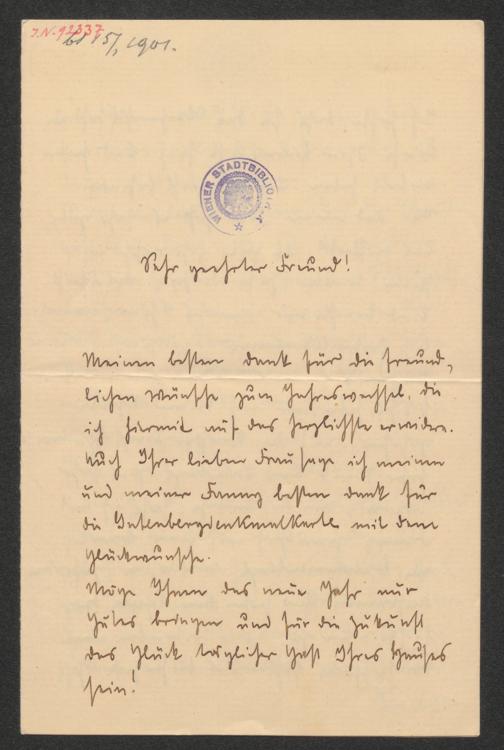 J.N. 92337
15/1 1901.
WIENER STADTBIBLIOTHEK
Sehr geehrter Freund!
Meinen besten Dank für die freund-
lichen Wünsche zum Jahreswechsel, die
ich hiermit auf das herzlichste erwidere.
Auch Ihrer lieben Frau sage ich meinen
und meiner Fanny besten Dank für
die Gutenbergdenkmalkarte mit dem
Glückwunsche.
Möge Ihnen das neue Jahr nur
Gutes bringen und für die Zukunft
das Glück täglicher Gast Ihres Hauses
sein!